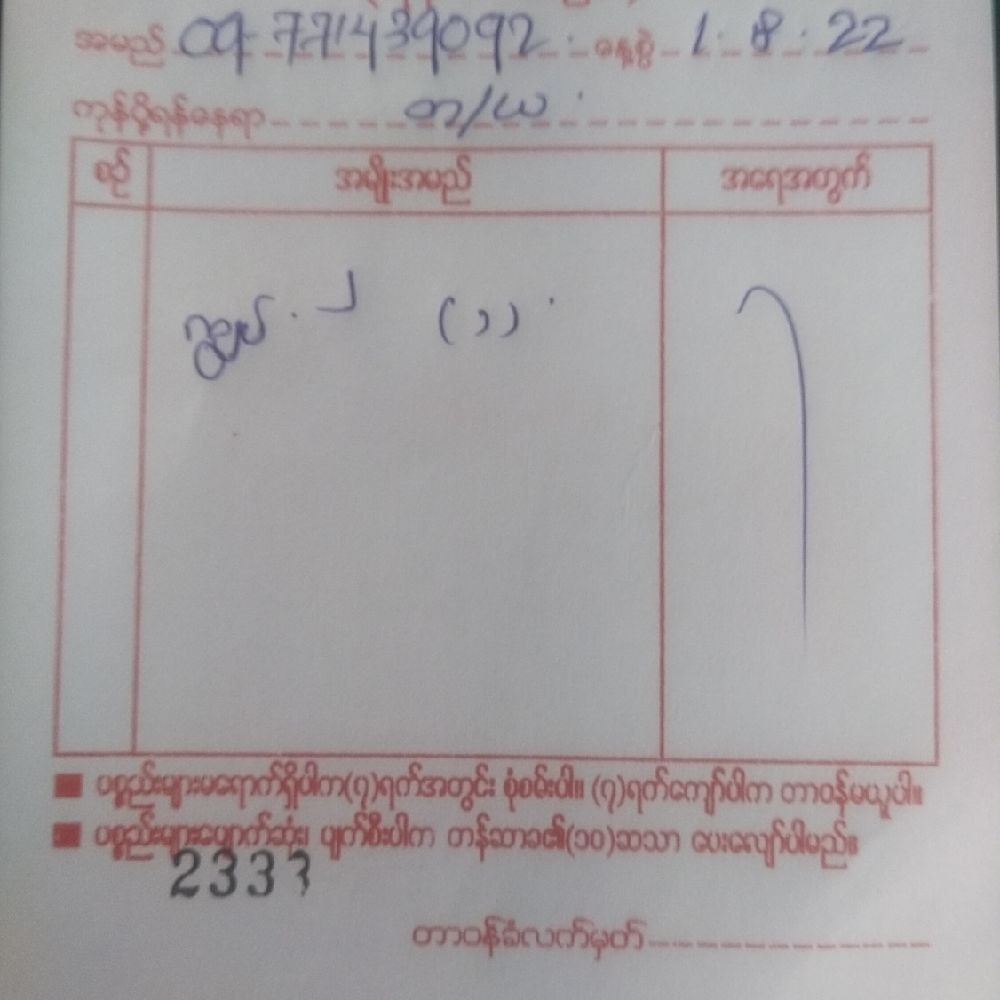 အမည် 09 771439092 . နေ့စွဲ 1 . 8 . 22
ကုန်ပို့ရန်နေရာ တ/ယ .
စဉ် အမျိုးအမည် အရေအတွက်
(၁) .
■ ပစ္စည်းများမရောက်ရှိပါက(၇)ရက်အတွင်း စုံစမ်းပါ။ (၇)ရက်ကျော်ပါက တာဝန်မယူပါ။
■ ပစ္စည်းများပျောက်ဆုံး၊ ပျက်စီးပါက တန်ဆာခ၏(၁၀)ဆသာ ပေးလျော်ပါမည်။
2333
တာဝန်ခံလက်မှတ်